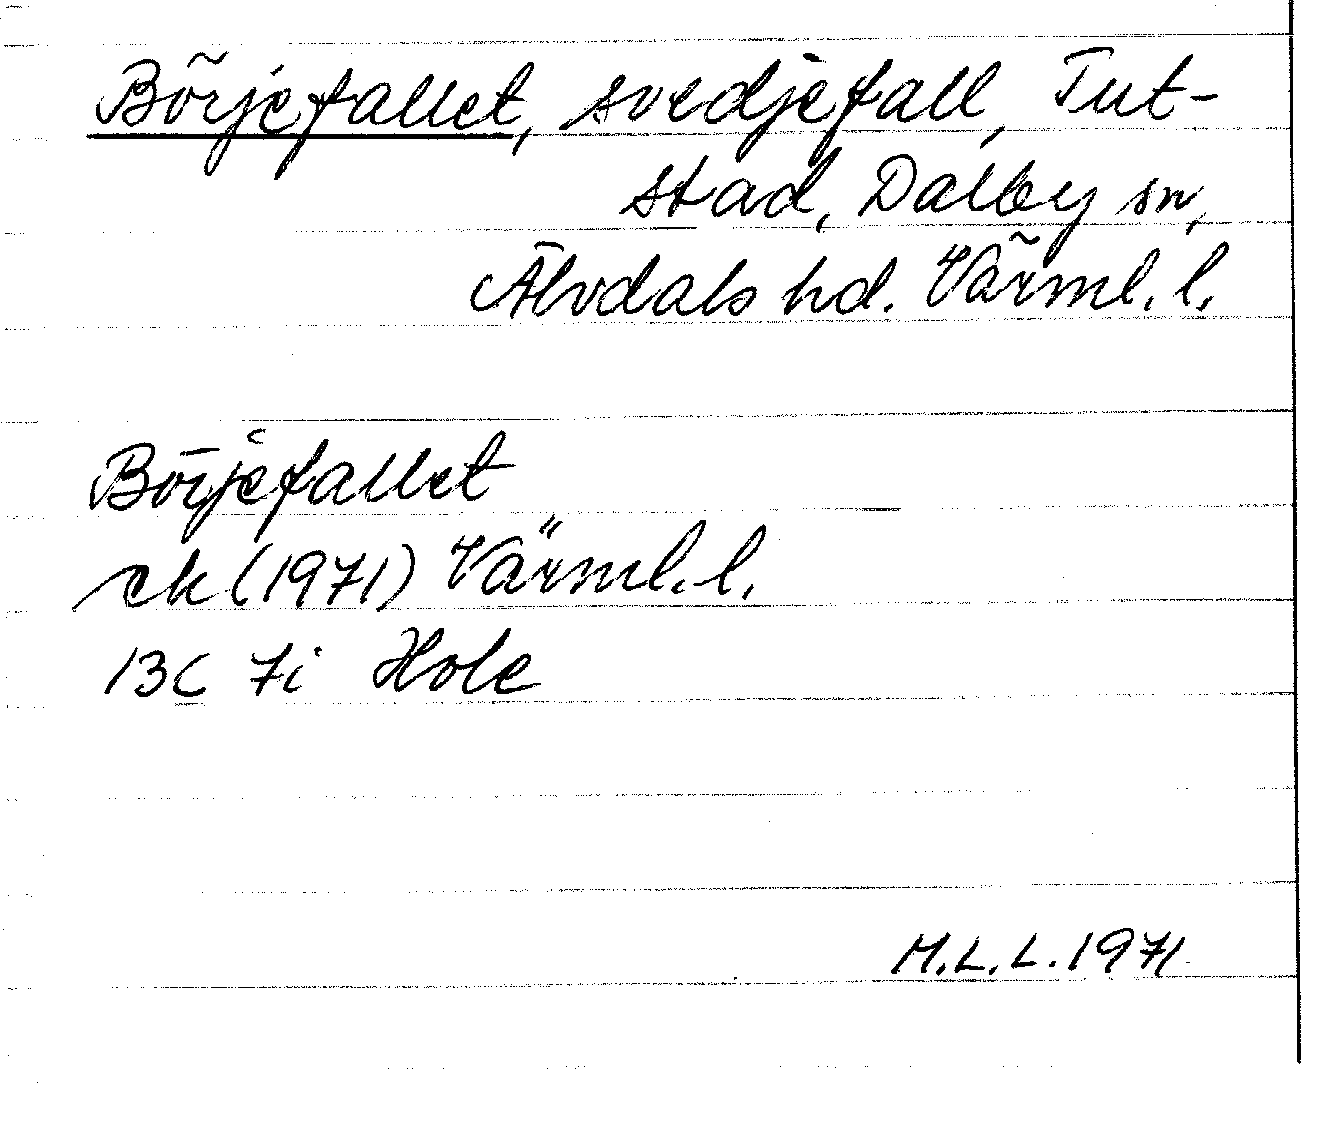 Börjefallet, svedjefall, Tut-
stad, Dalby sn,
Älvdals hd. Värml. l.
Börjefallet
ek (1971) Värml. l.
13C 7i Hole
M.L.L. 1971